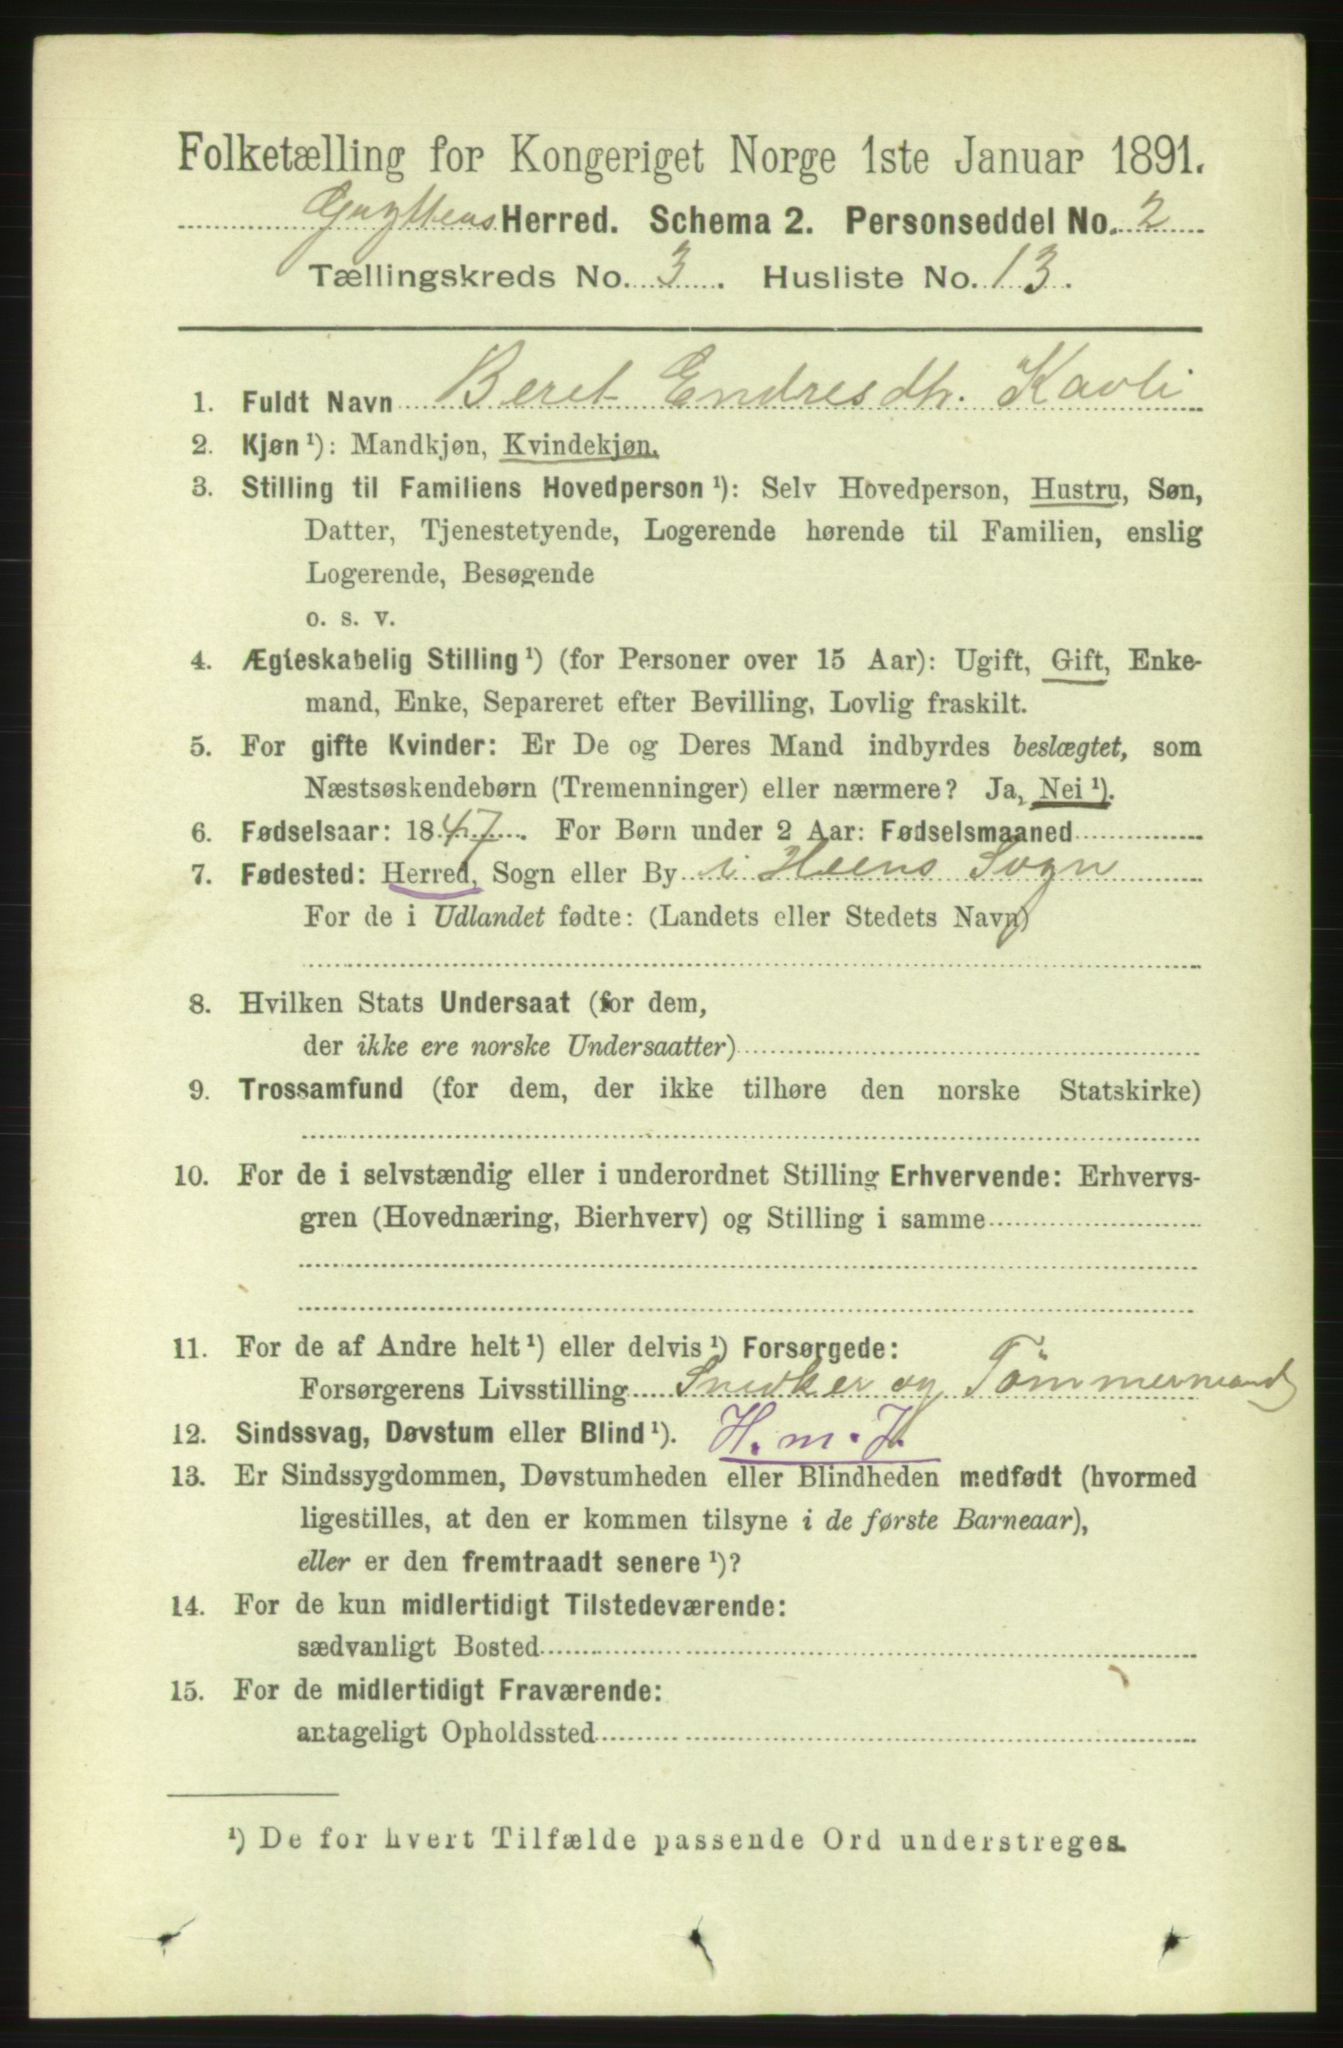 Folketælling for Kongeriget Norge 1ste Januar 1891.
Gryttens Herred. Schema 2. Personseddel No. 2
Tællingskreds No. 3. Husliste No. 13.
1. Fuldt Navn Beret Endresdtr. Kavli
2. Kjøn¹): Mandkjøn, Kvindekjøn.
3. Stilling til Familiens Hovedperson¹): Selv Hovedperson, Hustru, Søn,
Datter, Tjenestetyende, Logerende hørende til Familien, enslig
Logerende, Besøgende
o. s. v.
4. Ægteskabelig Stilling¹) (for Personer over 15 Aar): Ugift, Gift, Enke-
mand, Enke, Separeret efter Bevilling, Lovlig fraskilt.
5. For gifte Kvinder: Er De og Deres Mand indbyrdes beslægtet, som
Næstsøskendebørn (Tremenninger) eller nærmere? Ja, Nei¹).
6. Fødselsaar: 1847. For Børn under 2 Aar: Fødselsmaaned
7. Fødested: Herred, Sogn eller By i Heens Sogn
For de i Udlandet fødte: (Landets eller Stedets Navn)
8. Hvilken Stats Undersaat (for dem,
der ikke ere norske Undersaatter)
9. Trossamfund (for dem, der ikke tilhøre den norske Statskirke)
10. For de i selvstændig eller i underordnet Stilling Erhvervende: Erhvervs-
gren (Hovednæring, Bierhverv) og Stilling i samme
11. For de af Andre helt¹) eller delvis¹) Forsørgede:
Forsørgerens Livsstilling Snedker og Tömmermand
12. Sindssvag, Døvstum eller Blind¹). H. m. J.
13. Er Sindssygdommen, Døvstumheden eller Blindheden medfødt (hvormed
ligestilles, at den er kommen tilsyne i de første Barneaar),
eller er den fremtraadt senere¹)?
14. For de kun midlertidigt Tilstedeværende:
sædvanligt Bosted
15. For de midlertidigt Fraværende:
antageligt Opholdssted
¹) De for hvert Tilfælde passende Ord understreges.